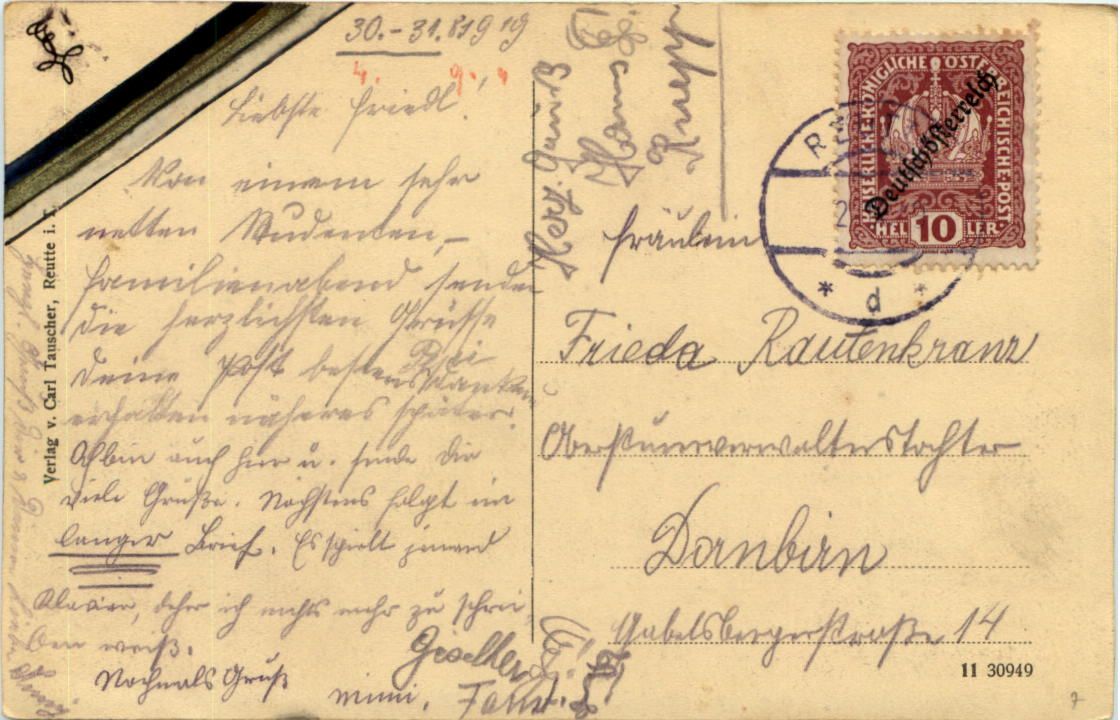 30.-31.8.1919
Liebste Friedl!
Von einem sehr
netten Studenten-
familienabend sendet
die herzlichsten Grüsse
Deine Post bestens
erhalten näheres später.
Ich bin auch hier u. sende Dir
viele Grüße. Nächstens folgt ein
langer Brief. Es spielt jemand
Klavier, daher ich nichts mehr zu schrei-
ben weiß.
Nochmals Gruß
Mimi.
Herz. Gruß
Hans
Rupp
Verlag v. Carl Tauscher, Reutte i. T.
KAISERLICHE KÖNIGLICHE ÖSTERREICHISCHE POST
Deutschösterreich
HEL 10 LER
d
Fräulein
Frieda Rautenkranz
Obersteuerverwalterstochter
Dornbirn
Gabelsbergerstraße 14
11 30949